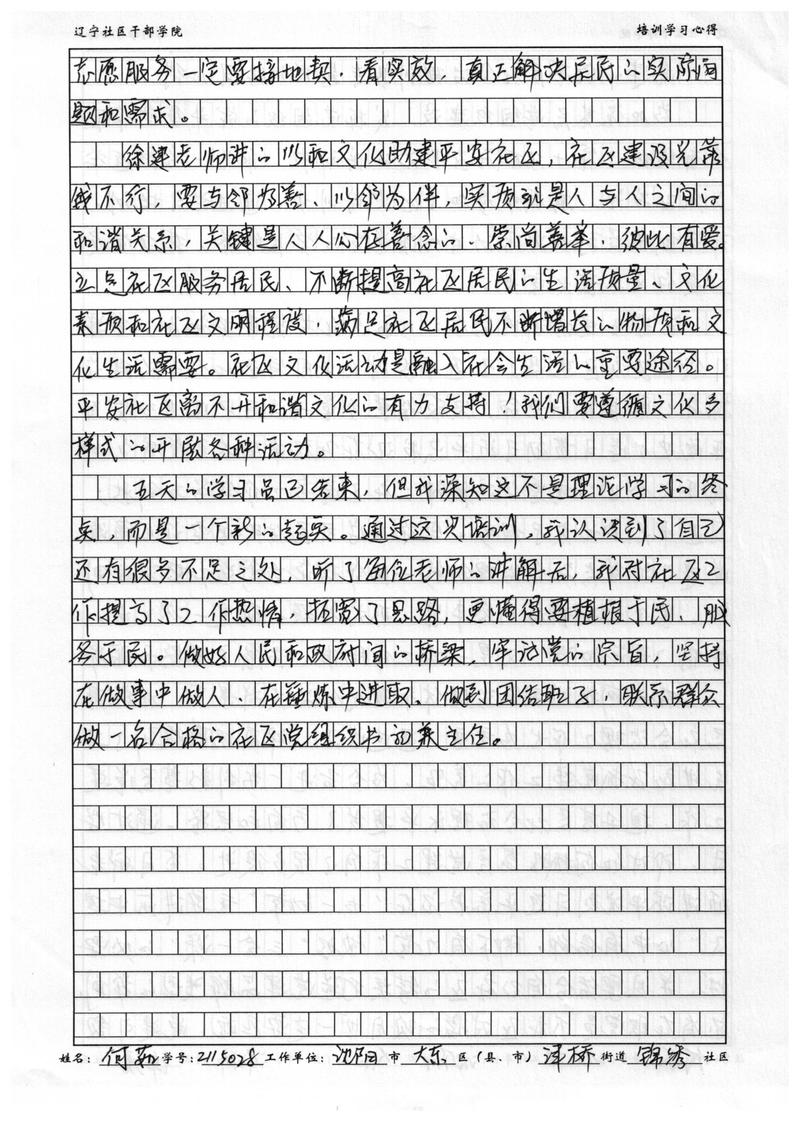 辽宁社区干部学院 培训学习心得
志愿服务一定要接地契，看实效，真正解决居民的实际问
题和需求。
徐建老师讲的以和文化助建平安社区，社区建设光靠
钱不行，要与邻为善、以邻为伴，实质就是人与人之间的
和谐关系，关键是人人心存善念的、崇尚善举，彼此有爱。
立足社区服务居民、不断提高社区居民的生活质量、文化
素质和社区文明程度，满足社区居民不断增长的物质和文
化生活需要。社区文化活动是融入社会生活的重要途径。
平安社区离不开和谐文化的有力支持！我们要遵循文化多
样式的开展各种活动。
五天的学习虽已结束，但我深知这不是理论学习的终
点，而是一个新的起点。通过这次培训，我认识到了自己
还有很多不足之处，听了每位老师的讲解后，我对社区工
作提高了工作热情，拓宽了思路，更懂得要植根于民、服
务于民。做好人民和政府间的桥梁，牢记党的宗旨，坚持
在做事中做人、在锤炼中进取、做到团结班子，联系群众
做一名合格的社区党组织书记兼主任。
姓名：何 学号：2115028 工作单位：沈阳 市 大东 区（县、市） 津桥 街道 锦绣 社区